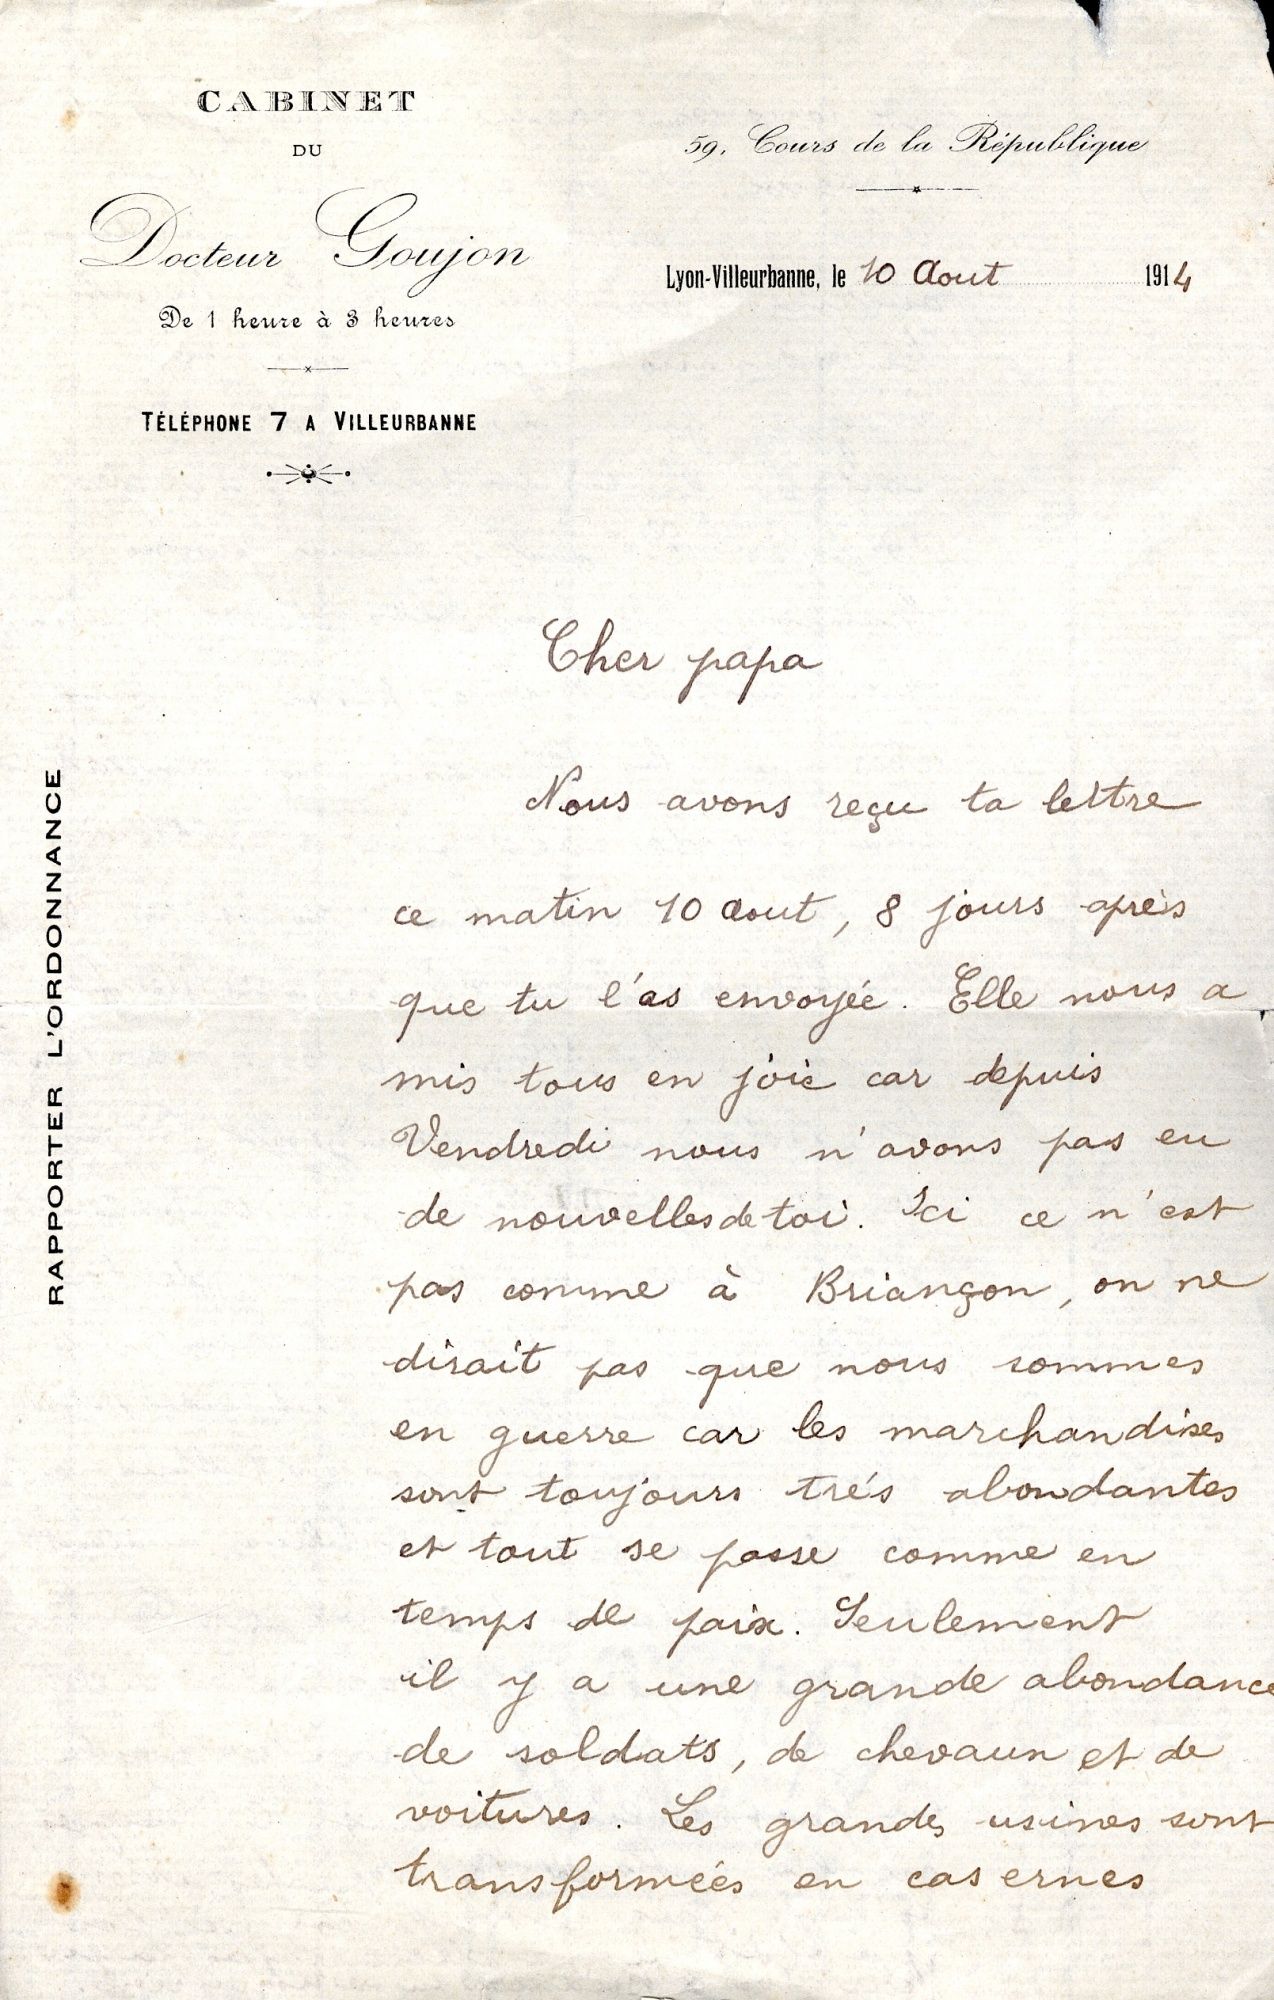 CABINET
DU
Docteur Goujon
De 1 heure à 3 heures
TÉLÉPHONE 7 A VILLEURBANNE
59, Cours de la République
Lyon-Villeurbanne, le 10 Aout 1914
RAPPORTER L'ORDONNANCE
Cher papa
Nous avons reçu ta lettre
ce matin 10 aout, 8 jours après
que tu l'as envoyée. Elle nous a
mis tous en joie car depuis
Vendredi nous n'avons pas eu
de nouvelles de toi. Ici ce n'est
pas comme à Briançon, on ne
dirait pas que nous sommes
en guerre car les marchandises
sont toujours trés abondantes
et tout se passe comme en
temps de paix. Seulement
il y a une grande abondance
de soldats, de chevaux et de
voitures. Les grandes usines sont
transformées en casernes